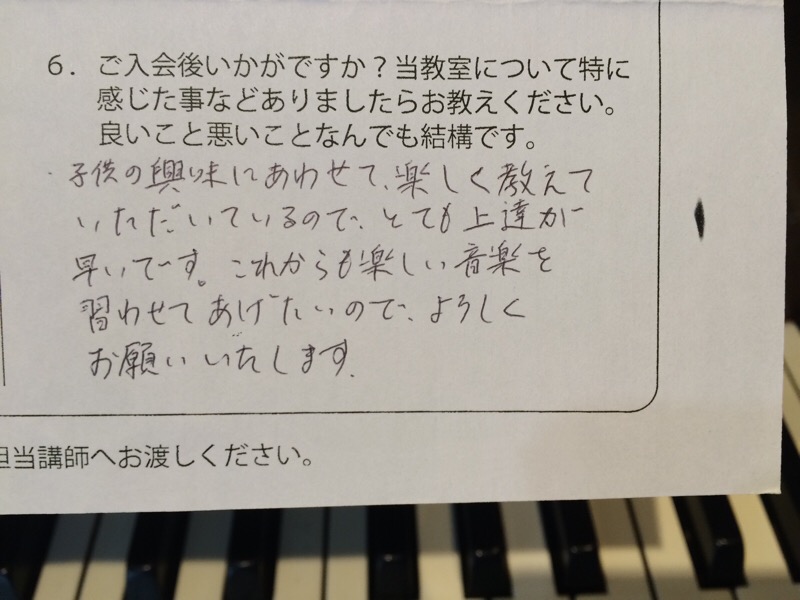 6．ご入会後いかがですか？当教室について特に
感じた事などありましたらお教えください。
良いこと悪いことなんでも結構です。
・子供の興味にあわせて、楽しく教えて
いただいているので、とても上達が
早いです。これからも楽しい音楽を
習わせてあげたいので、よろしく
お願いいたします。
担当講師へお渡しください。